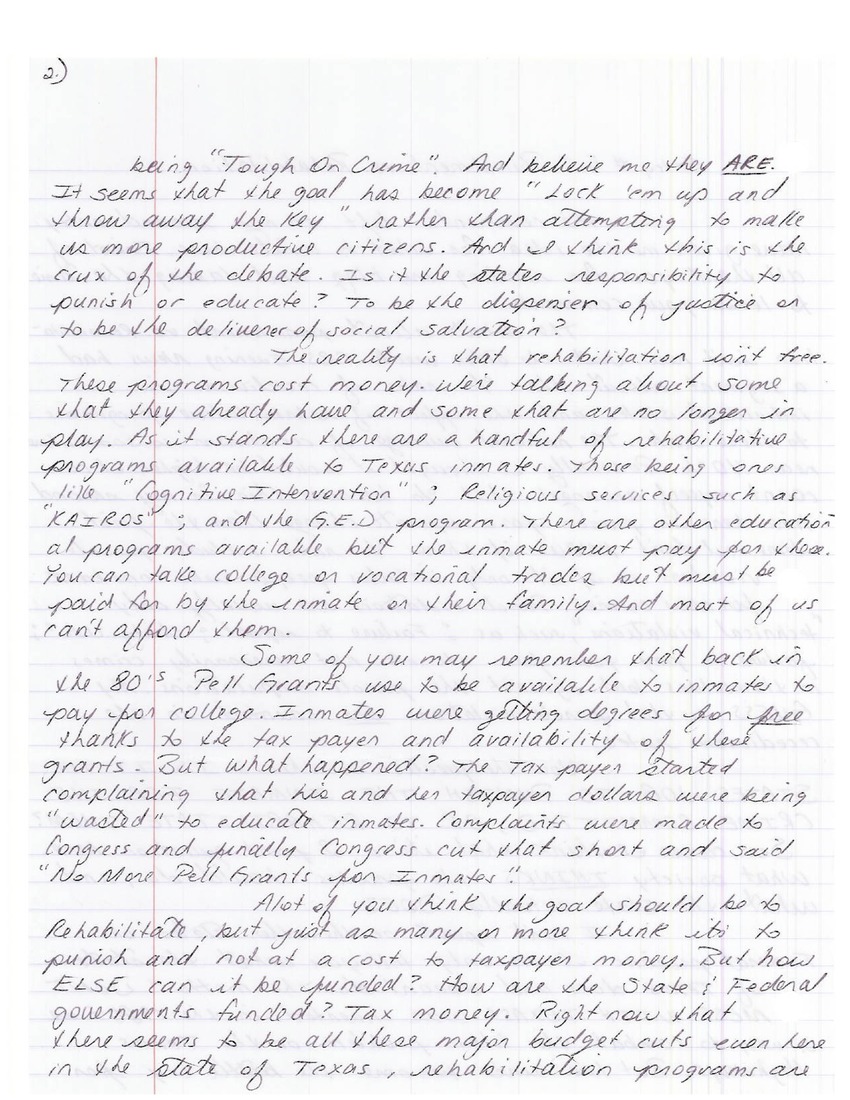 2.)
being "Tough On Crime". And believe me they ARE.
It seems that the goal has become "Lock 'em up and
throw away the key" rather than attempting to make
us more productive citizens. And I think this is the
crux of the debate. Is it the states responsibility to
punish or educate? To be the dispenser of justice or
to be the deliverer of social salvation?
The reality is that rehabilitation isn't free.
These programs cost money. We're talking about some
that they already have and some that are no longer in
play. As it stands there are a handful of rehabilitative
programs available to Texas inmates. Those being ones
like "Cognitive Intervention"; Religious services such as
"KAIROS"; and the G.E.D. program. There are other education
al programs available but the inmate must pay for these.
You can take college or vocational trades but must be
paid for by the inmate or their family. And most of us
can't afford them.
Some of you may remember that back in
the 80's Pell Grants use to be available to inmates to
pay for college. Inmates were getting degrees for free
thanks to the tax payer and availability of these
grants. But what happened? The Tax payer started
complaining that his and her taxpayer dollars were being
"wasted" to educate inmates. Complaints were made to
Congress and finally Congress cut that short and said
"No More Pell Grants for Inmates".
Alot of you think the goal should be to
Rehabilitate, but just as many or more think its to
punish and not at a cost to taxpayer money. But how
ELSE can it be funded? How are the State & Federal
governments funded? Tax money. Right now that
there seems to be all these major budget cuts even here
in the state of Texas, rehabilitation programs are